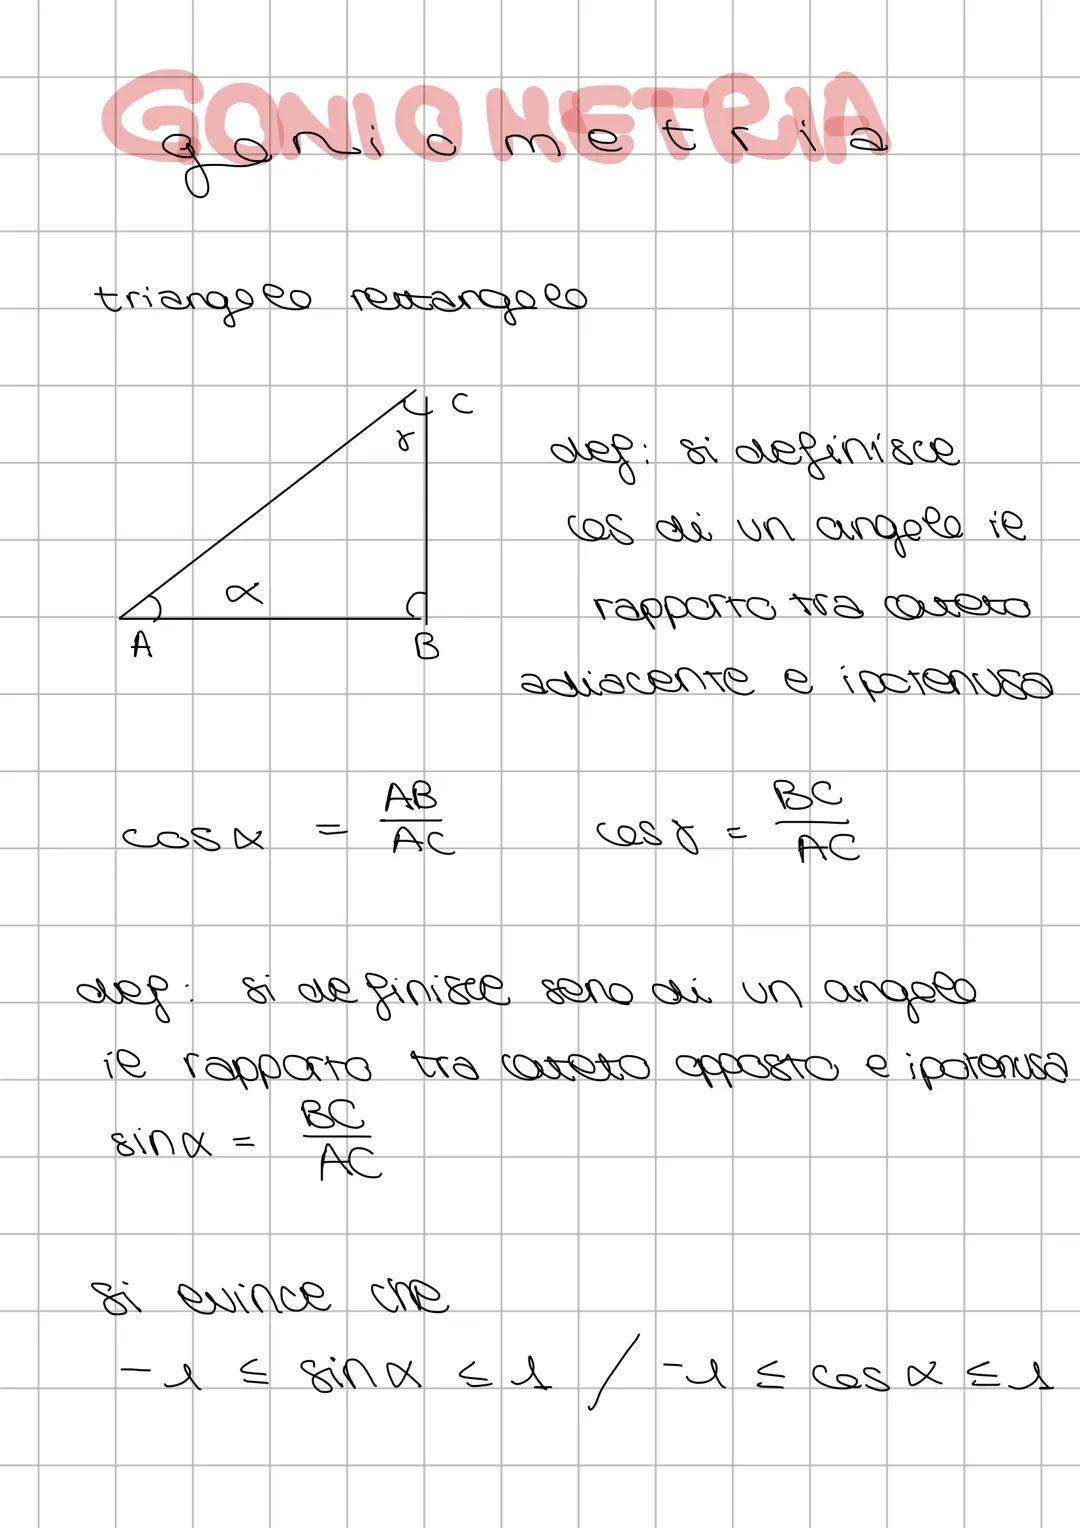 GONIOMETRIA
goniometria
triangolo rettangolo
C
γ
def: si definisce
cos di un angolo il
α
rapporto tra cateto
A
B
adiacente e ipotenusa
cosα = AB/AC
cosγ = BC/AC
def: si definisce seno di un angolo
il rapporto tra cateto opposto e ipotenusa
sinα = BC/AC
si evince che
-1 ≤ sinα ≤ 1 / -1 ≤ cosα ≤ 1